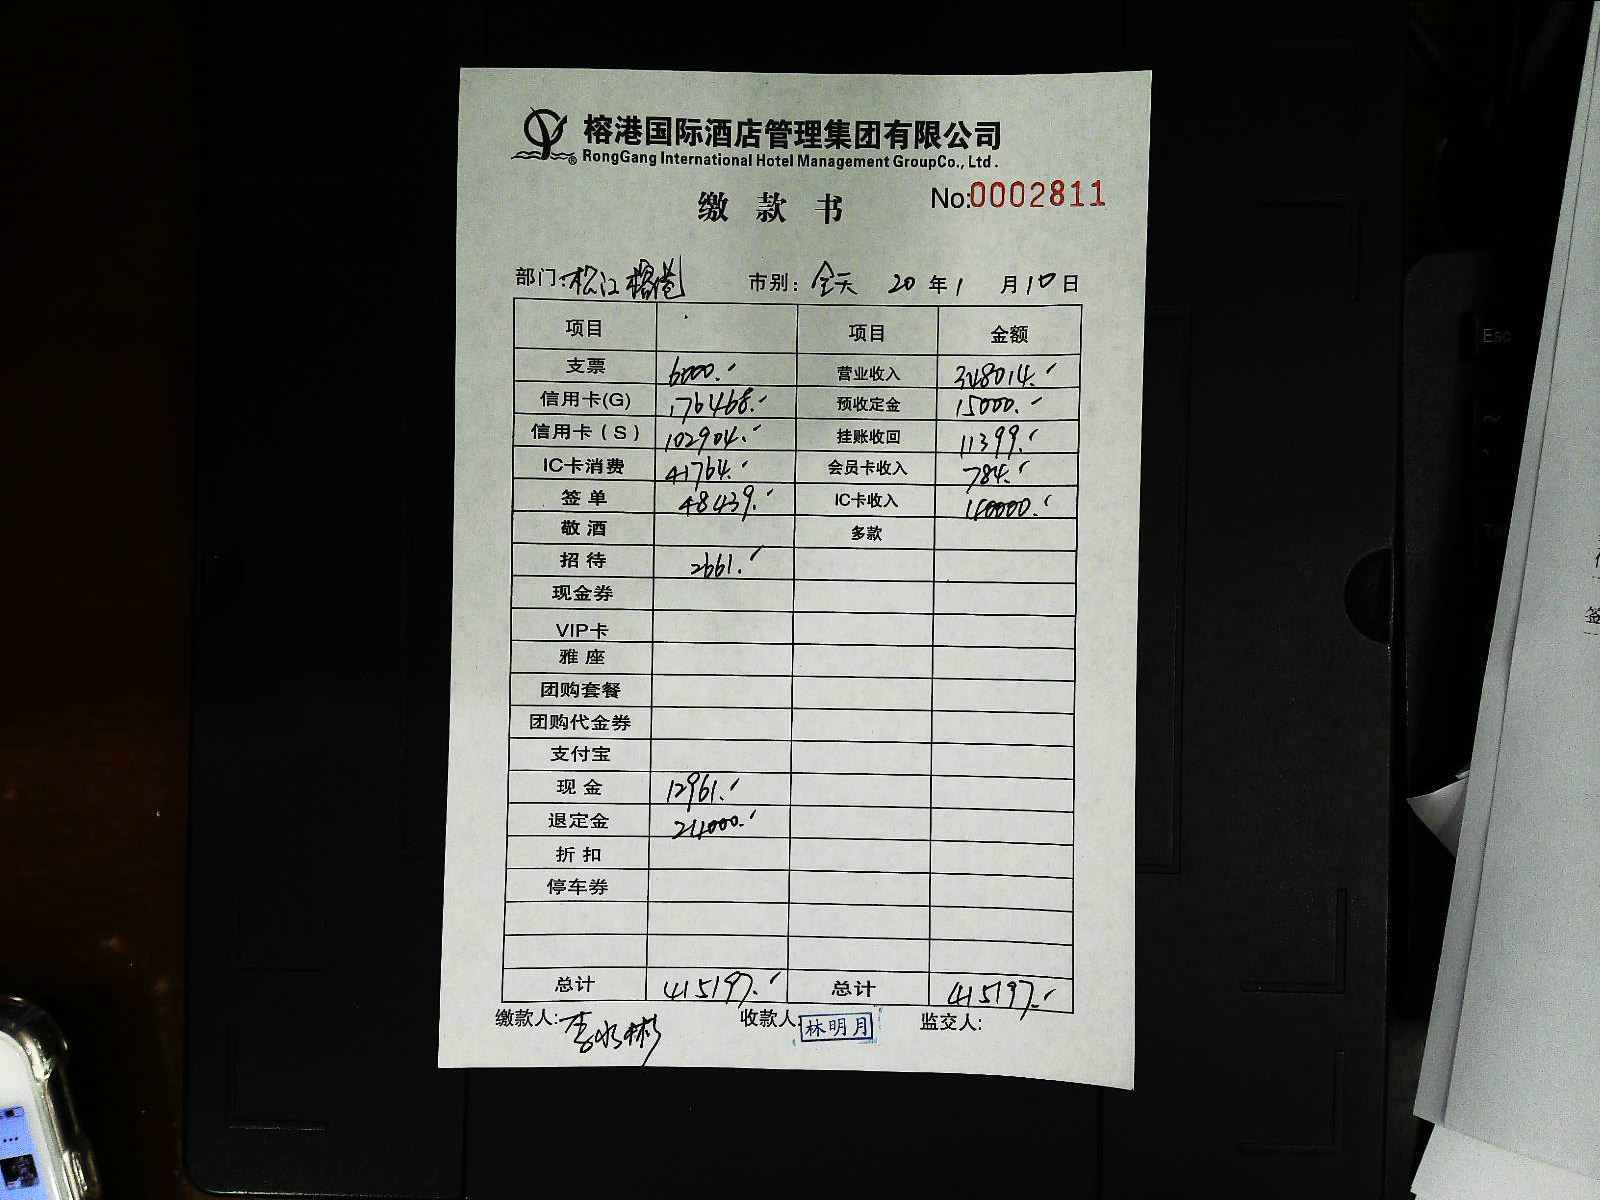 榕港国际酒店管理集团有限公司
RongGang International Hotel Management GroupCo., Ltd.
缴款书 No:0002811
部门:松江榕港 市别:全天 20年1月10日
项目 项目 金额
支票 6000.- 营业收入 348014.-
信用卡(G) 176468.- 预收定金 15000.-
信用卡(S) 102904.- 挂账收回 11399.-
IC卡消费 41764.- 会员卡收入 784.-
签单 48439.- IC卡收入 40000.-
敬酒 多款
招待 2661.-
现金券
VIP卡
雅座
团购套餐
团购代金券
支付宝
现金 12961.-
退定金 24000.-
折扣
停车券
总计 415197.- 总计 415197.-
缴款人: 收款人: 林明月 监交人:
Esc